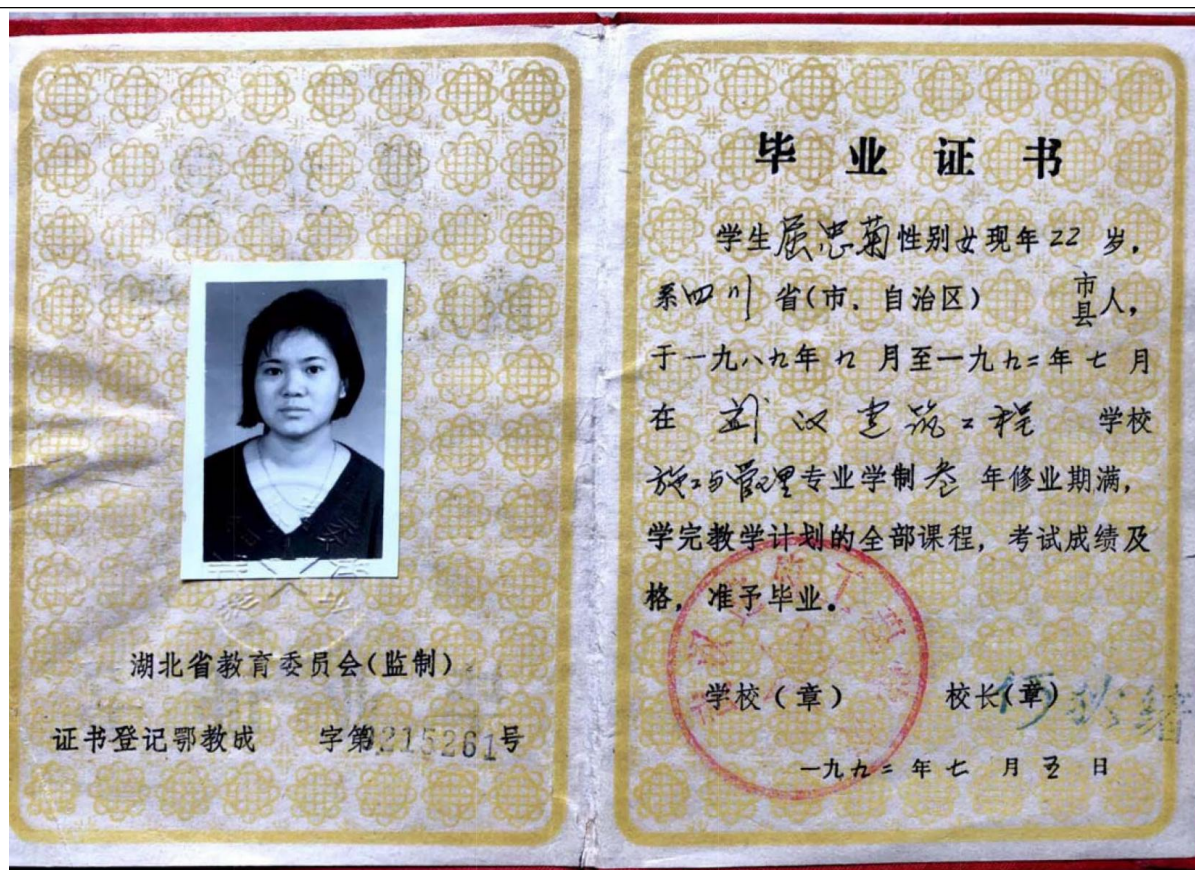 湖北省教育委员会(监制)
证书登记鄂教成 字第9215261号
毕业证书
学生屈忠菊性别女现年22岁,
系四川省(市、自治区) 市县人,
于一九八九年九月至一九九二年七月
在 武汉建筑工程 学校
施工与管理专业学制叁年修业期满,
学完教学计划的全部课程,考试成绩及
格,准予毕业。
学校(章) 校长(章)
一九九二年七月五日